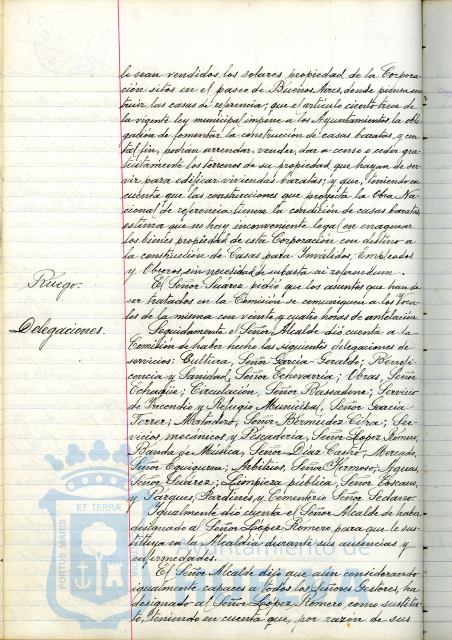 le sean vendidos los solares propiedad de la Corpora-
ción sitos en el paseo de Buenos Aires, donde piensa cons-
truir las casas de referencia; que el artículo ciento trece de
la vigente ley municipal impone a los Ayuntamientos la obli-
gación de fomentar la construcción de casas baratas, y con
tal fin, podrán arrendar, vender, dar a censo o ceder gra-
tuitamente los terrenos de su propiedad que hayan de ser-
vir para edificar viviendas baratas; y que, teniendo en
cuenta que las construcciones que proyecta la Obra Na-
cional de referencia, tienen la condición de casas baratas,
estima que no hay inconveniente legal en enagenar
los bienes propiedad de esta Corporación con destino a
la construcción de Casas para Inválidos, Empleados
y Obreros, sin necesidad de subasta ni referendum.
Ruego.
El Señor Suárez pidió que los asuntos que han de
ser tratados en la Comisión se comuniquen a los Voca-
les de la misma con veinte y cuatro horas de antelación.
Delegaciones.
Seguidamente el Señor Alcalde dió cuenta a la
Comisión de haber hecho las siguientes delegaciones de
servicios: Cultura, Señor García Geraldo; Benefi-
cencia y Sanidad, Señor Echevarría; Obras, Señor
Echagüe; Circulación, Señor Bassadone; Servicio
de Incendio y Refugio Municipal, Señor García
Ferrer; Matadero, Señor Bermúdez Cira; Ser-
vicios mecánicos y Pescadería, Señor López Romero;
Banda de Música, Señor Díaz Castro; Mercado,
Señor Eguiguren; Arbitrios, Señor Hermoso; Aguas,
Señor Suárez; Limpieza pública, Señor Toscano,
y Parques, Jardines y Cementerio Señor Sedano.
Igualmente dió cuenta el Señor Alcalde de haber
designado al Señor López Romero, para que le sus-
tituya en la Alcaldía durante sus ausencias y
enfermedades.
El Señor Alcalde dijo que aún considerando
igualmente capaces a todos los Señores Gestores, ha
designado al Señor López Romero, como sustitu-
to, teniendo en cuenta que, por razón de sus
PORTUS MARIS ET TERRÆ
Ayuntamiento de